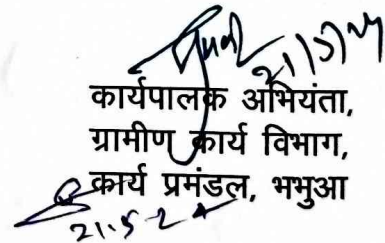 21/5/24
कार्यपालक अभियंता,
ग्रामीण कार्य विभाग,
कार्य प्रमंडल, भभुआ
21.5.24